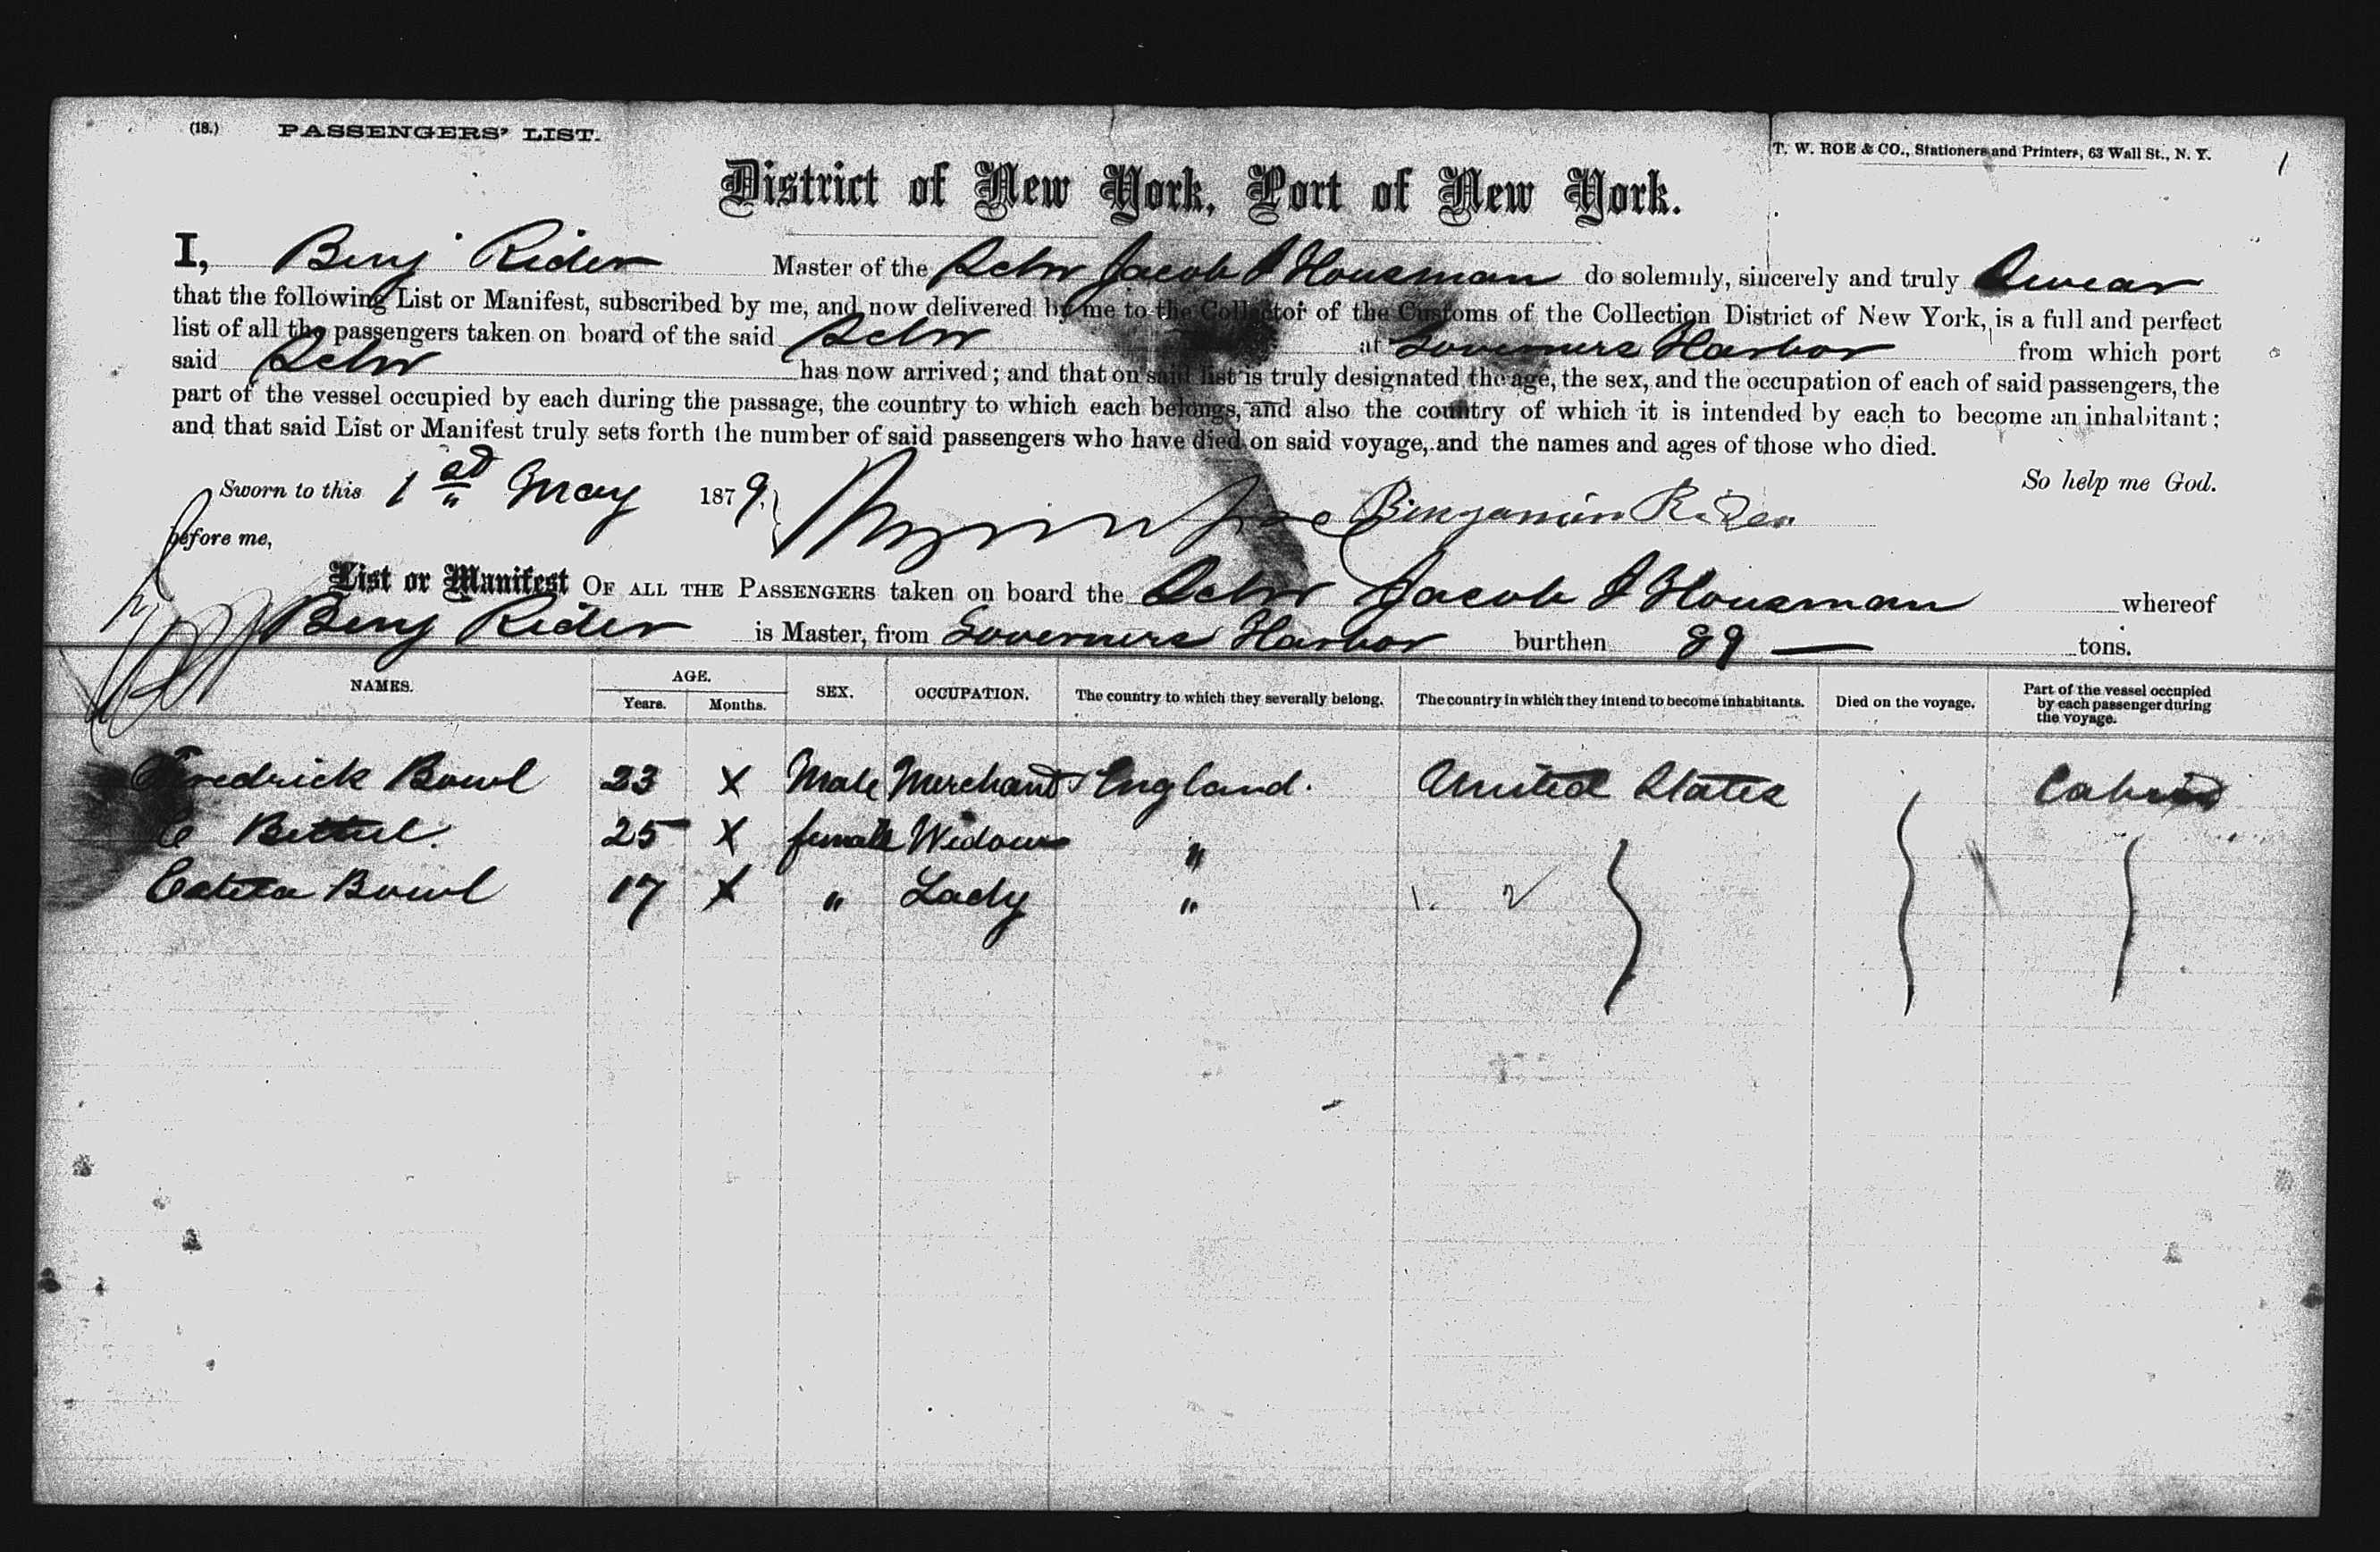 (18.) PASSENGERS' LIST.
T. W. ROE & CO., Stationers and Printers, 63 Wall St., N. Y. 1
District of New York, Port of New York.
I, Benj Rider Master of the Schr Jacob I Housman do solemnly, sincerely and truly Swear
that the following List or Manifest, subscribed by me, and now delivered by me to the Collector of the Customs of the Collection District of New York, is a full and perfect
list of all the passengers taken on board of the said Schr at Governers Harbor from which port
said Schr has now arrived; and that on said list is truly designated the age, the sex, and the occupation of each of said passengers, the
part of the vessel occupied by each during the passage, the country to which each belongs, and also the country of which it is intended by each to become an inhabitant;
and that said List or Manifest truly sets forth the number of said passengers who have died on said voyage, and the names and ages of those who died.
So help me God.
Sworn to this 1st May 1879, Benjamin Rider
before me,
List or Manifest OF ALL THE PASSENGERS taken on board the Schr Jacob I Housman whereof
Benj Rider is Master, from Governers Harbor burthen 89 — tons.
NAMES. AGE. Years. Months. SEX. OCCUPATION. The country to which they severally belong. The country in which they intend to become inhabitants. Died on the voyage. Part of the vessel occupied by each passenger during the voyage.
Fredrick Bowl 23 X Male Merchant England. United States Cabin
C Bethel. 25 X female Widow "
Bowl 17 X " Lady "